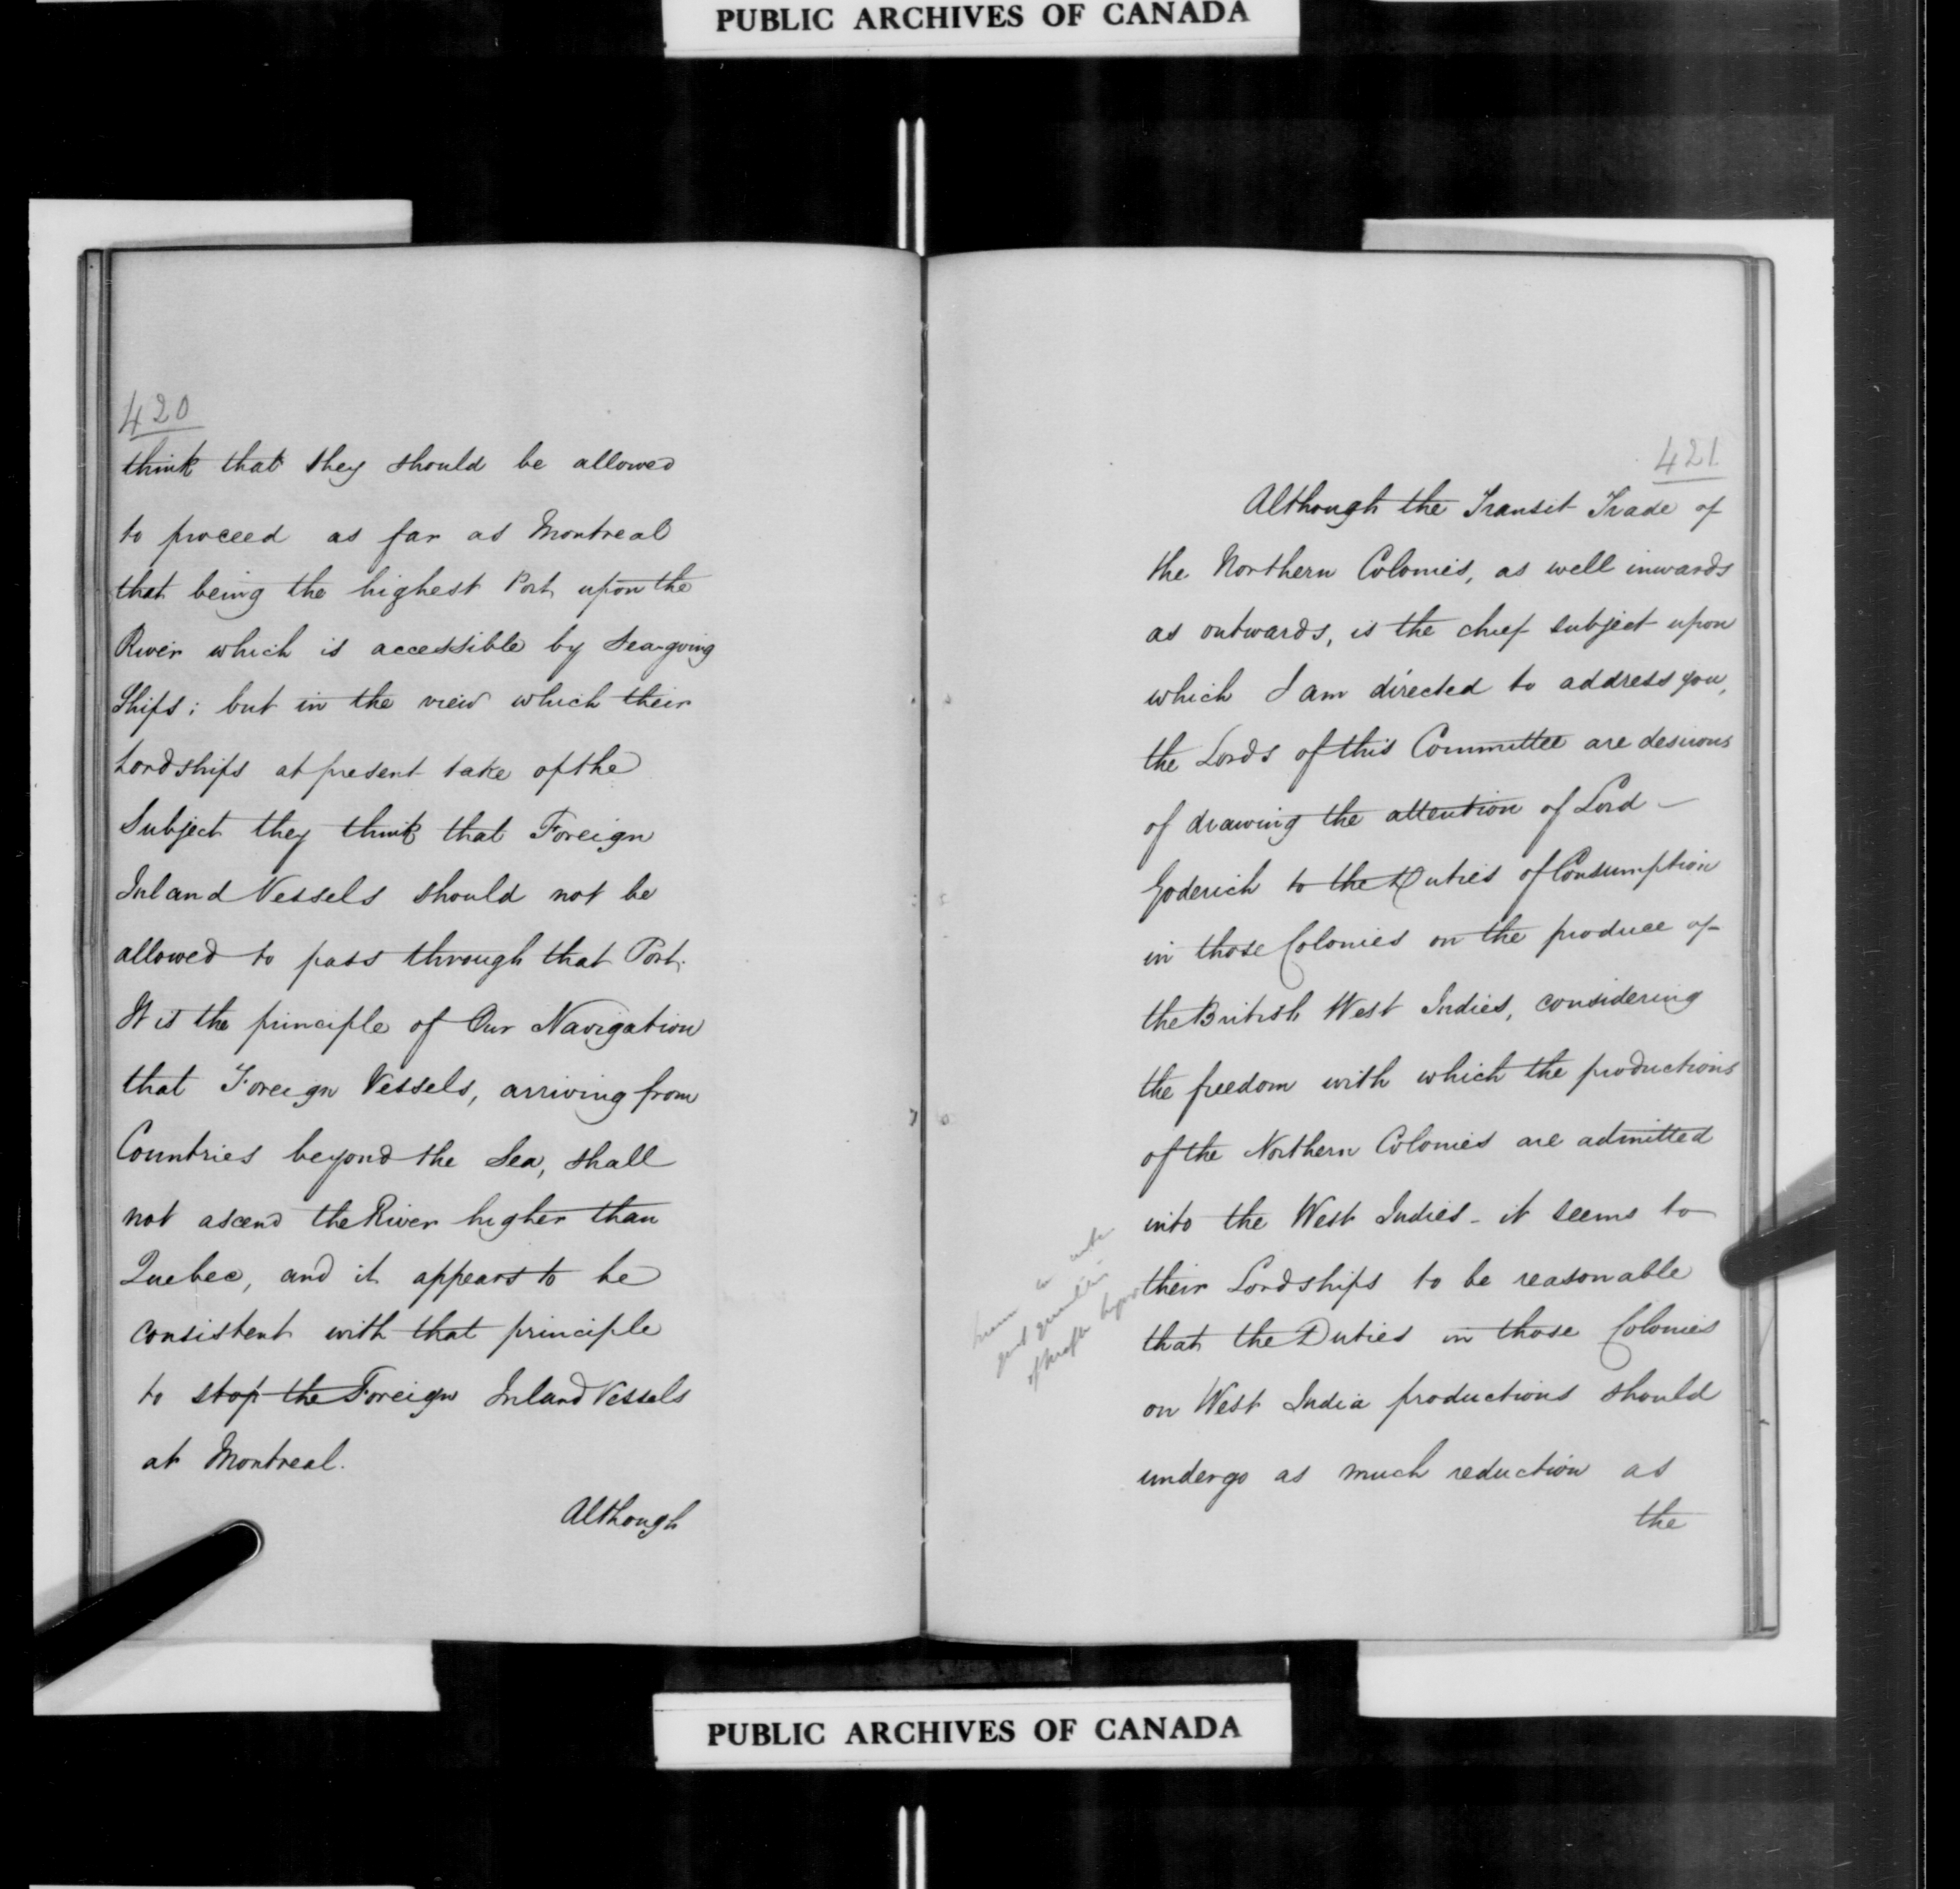 PUBLIC ARCHIVES OF CANADA
420
think that they should be allowed
to proceed as far as Montreal
that being the highest Port upon the
River which is accessible by Sea-going
Ships; but in the view which their
Lordships at present take of the
Subject they think that Foreign
Inland Vessels should not be
allowed to pass through that Port.
It is the principle of Our Navigation
that Foreign Vessels, arriving from
Countries beyond the Sea, shall
not ascend the River higher than
Quebec, and it appears to be
consistent with that principle
to stop the Foreign Inland Vessels
at Montreal.
Although
421.
Although the Transit Trade of
the Northern Colonies, as well inwards
as outwards, is the chief subject upon
which I am directed to address you,
the Lords of this Committee are desirous
of drawing the attention of Lord
Goderich to the Duties of Consumption
in those Colonies on the produce of
the British West Indies, considering
the freedom with which the productions
of the Northern Colonies are admitted
into the West Indies - it seems to
their Lordships to be reasonable
that the Duties in those Colonies
on West India productions should
undergo as much reduction as
the
PUBLIC ARCHIVES OF CANADA